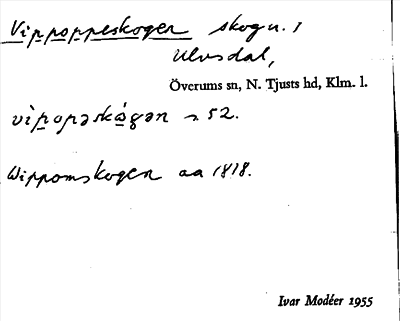 Vippoppeskogen skog u. 1
Ulvsdal,
Överums sn, N. Tjusts hd, Klm. l.
vìpopəskógən s. 52.
Wippomskogen aa 1818.
Ivar Modéer 1955